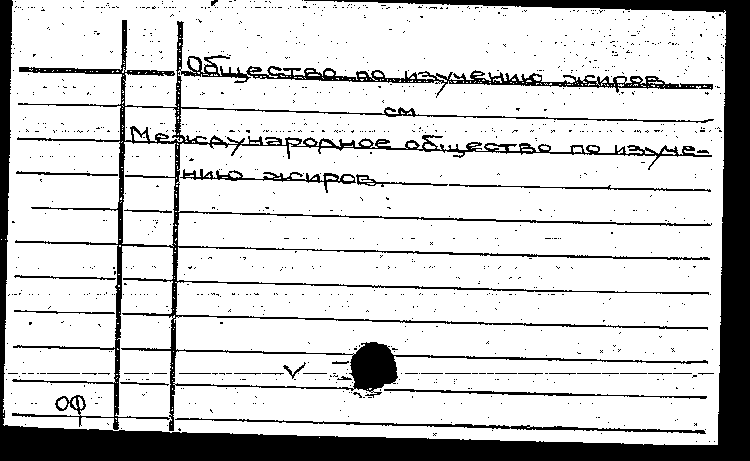 Общество по изучению жиров
см
Международное общество по изуче-
нию жиров.
ОФ